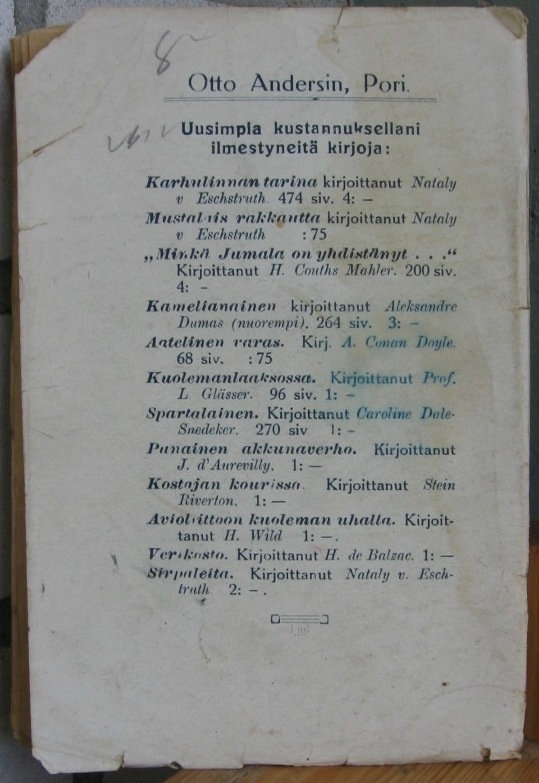 8
Otto Andersin, Pori.
Uusimpia kustannuksellani
ilmestyneitä kirjoja:
Karhulinnan tarina kirjoittanut Nataly
v Eschstruth. 474 siv. 4: —
Mustalais rakkautta kirjoittanut Nataly
v Eschstruth :75
„Minkä Jumala on yhdistänyt . . .“
Kirjoittanut H. Couths Mahler. 200 siv.
4: —
Kamelianainen kirjoittanut Aleksandre
Dumas (nuorempi). 264 siv. 3: —
Aatelinen varas. Kirj. A. Conan Doyle.
68 siv. :75
Kuolemanlaaksossa. Kirjoittanut Prof.
L Glässer. 96 siv. 1: —
Spartalainen. Kirjoittanut Caroline Dale-
Snedeker. 270 siv 1: —
Punainen akkunaverho. Kirjoittanut
J. d'Aurevilly. 1: —
Kostajan kourissa. Kirjoittanut Stein
Riverton. 1: —
Avioliittoon kuoleman uhalla. Kirjoit-
tanut H. Wild 1: —.
Verikosto. Kirjoittanut H. de Balzac. 1: —
Sirpaleita. Kirjoittanut Nataly v. Esch-
truth. 2: — .